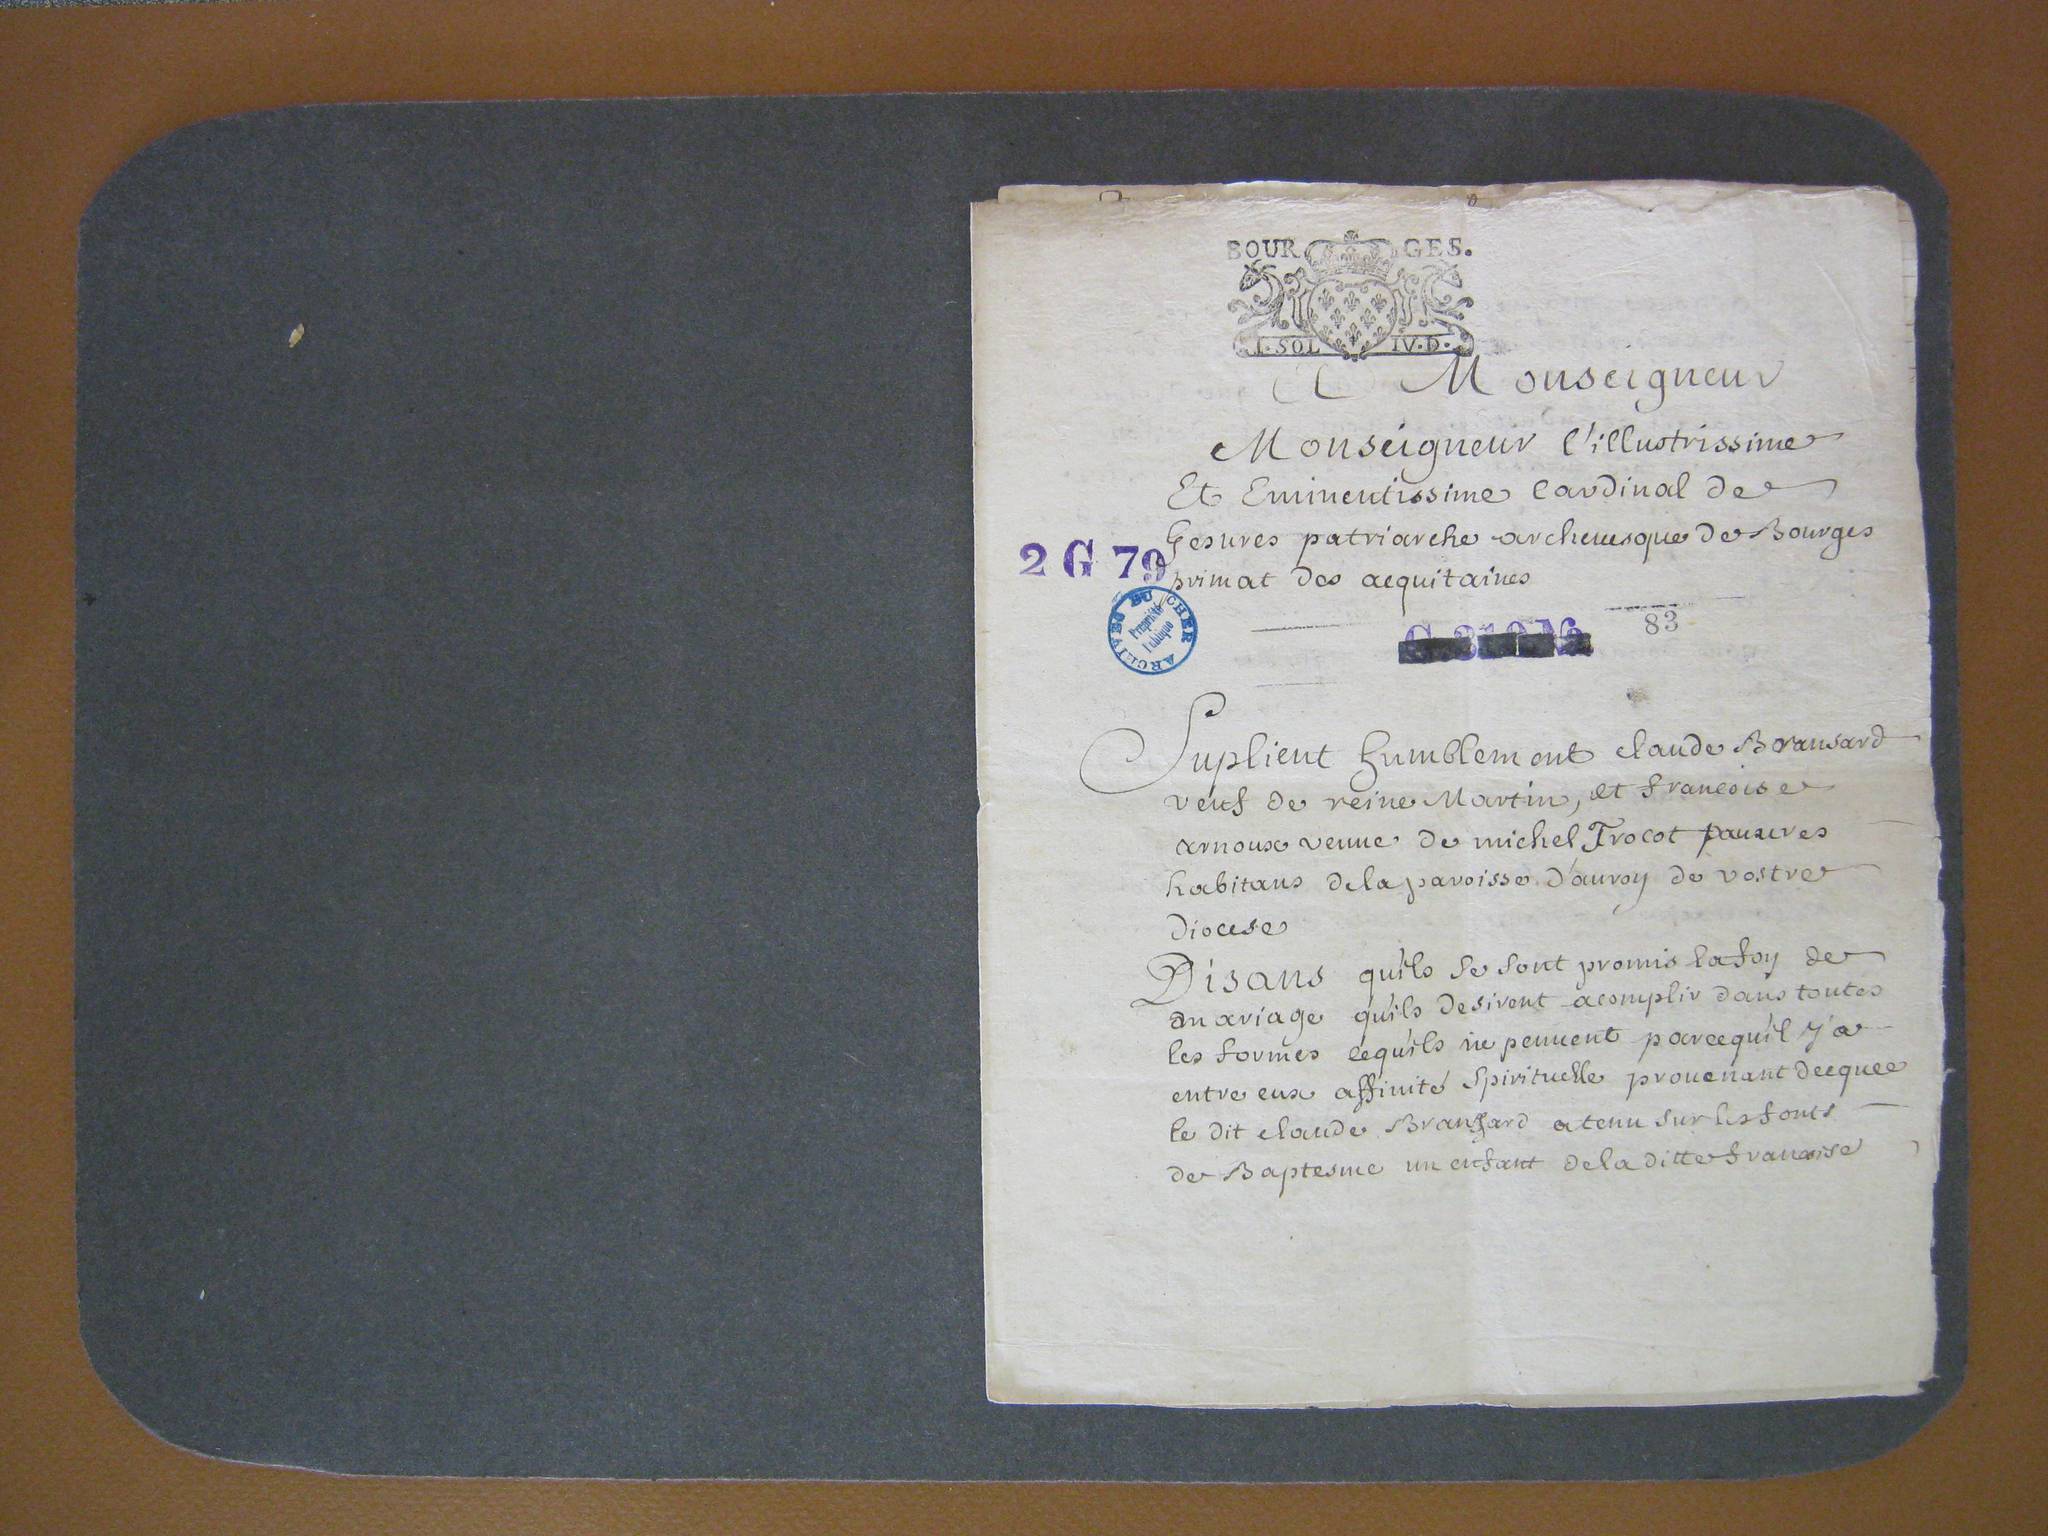 BOURGES.
I·SOL IV·D·
A Monseigneur
Monseigneur l'illustrissime
Et Eminentissime Cardinal de
Gesures patriarche archeuesque de Bourges
2 G 79
primat des aequitaines
ARCHIVES DU CHER
Propriété
Publique
83
Suplient humblement claude Bransard
veuf de reine Martin, et francoise
arnoux veuue de michel Trocot pauures
habitans de la paroisse d'auroy de vostre
Diocese
Disans qu'ils se sont promis la foy de
mariage qu'ils desirent acomplir dans toutes
les formes cequ'ils ne peuuent parcequ'il y'a
entre eux affinité spirituelle prouenant decque
le dit claude Bransard a tenu sur les fonts
de Baptesme un enfant de la ditte francoise